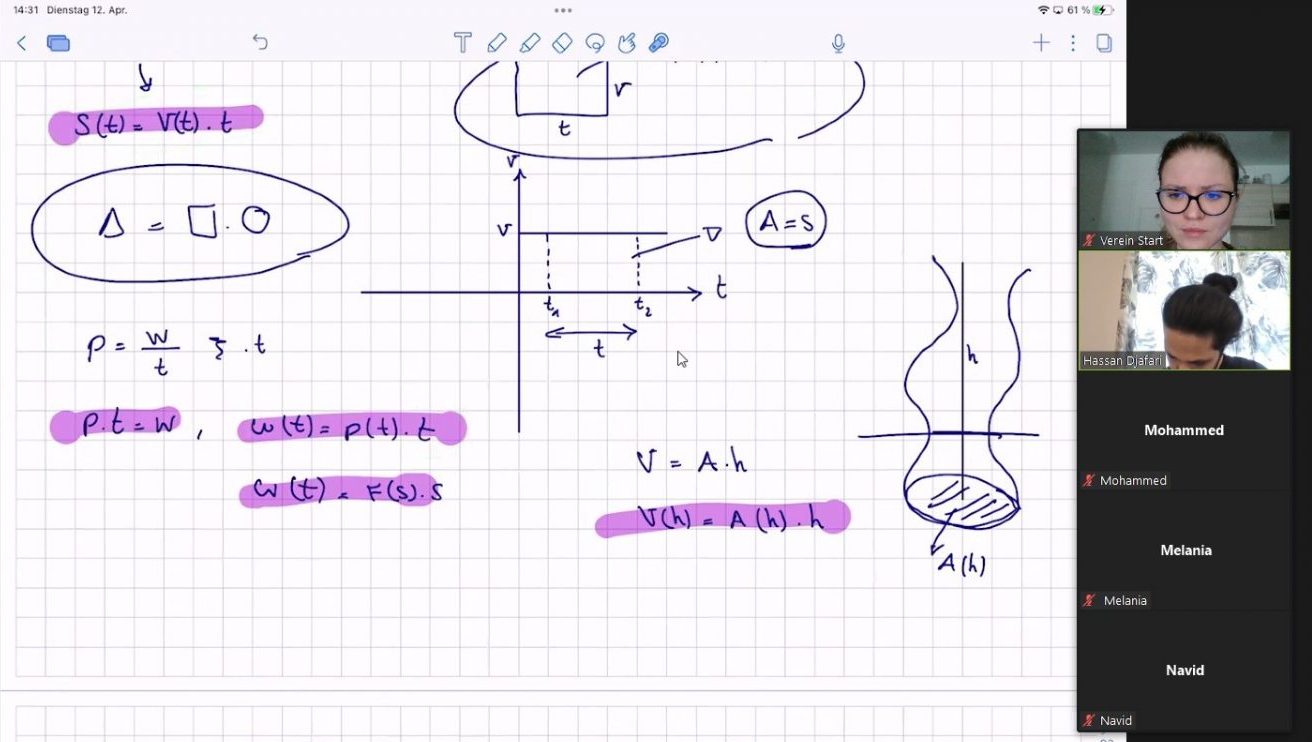 14:31 Dienstag 12. Apr.
61 %
S(t) = V(t) . t
V
t
Δ = □ . ○
V
V
t
t₁
t₂
t
A = S
P = W/t } . t
P . t = W ,
W(t) = P(t) . t
W(t) = F(s) . s
V = A . h
V(h) = A(h) . h
h
A(h)
Verein Start
Hassan Djafari
Mohammed
Mohammed
Melania
Melania
Navid
Navid